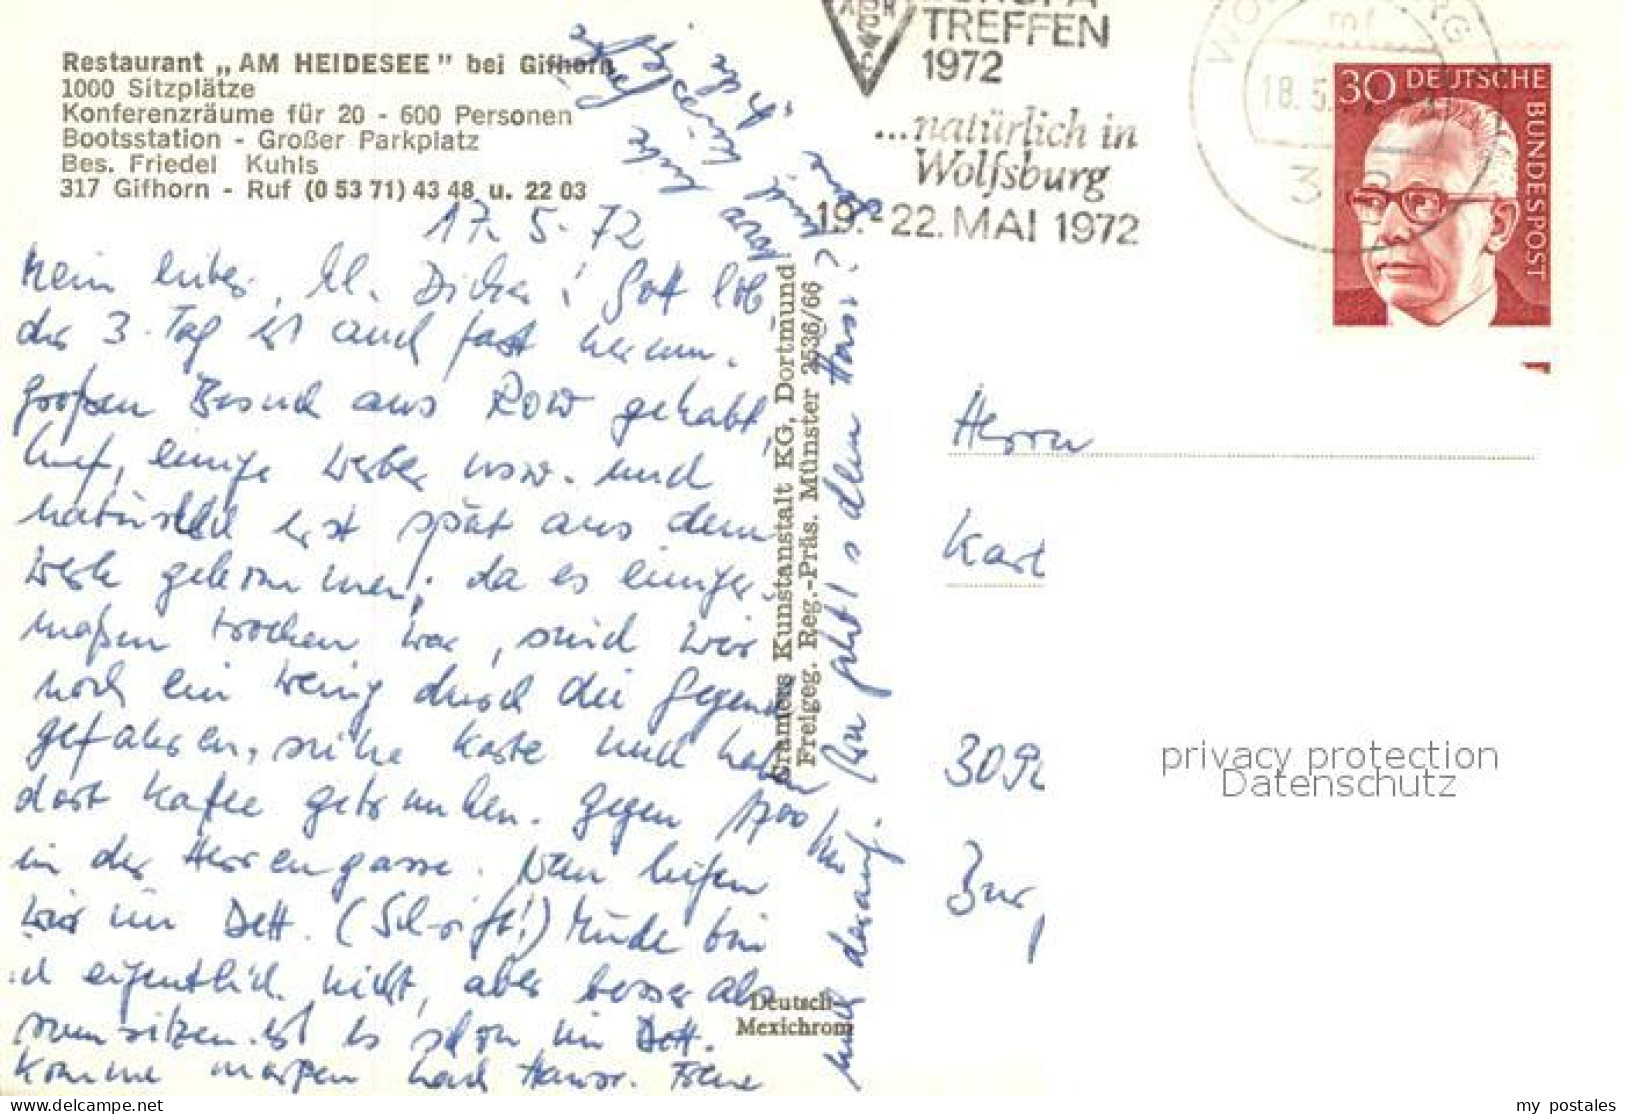 Restaurant „AM HEIDESEE" bei Gifhorn
1000 Sitzplätze
Konferenzräume für 20 - 600 Personen
Bootsstation - Großer Parkplatz
Bes. Friedel Kuhls
317 Gifhorn - Ruf (0 53 71) 43 48 u. 22 03
17. 5. 72
Mein lieber, kl. Dicker! Gott lob,
der 3. Tag ist auch fast herum.
Großen Besuch aus ROW gehabt,
einige Werber usw. und
natürlich erst spät aus dem
Werk gekommen; da es einiger-
maßen trocken war, sind wir
noch ein wenig durch die Gegend
gefahren, siehe Karte und haben
dort Kaffee getrunken. Gegen 1700
in der Herrengasse. Dann liefen
wir im Bett. (Schrift!) Müde bin
ich eigentlich nicht, aber besser als
rumsitzen ist es schon im Bett.
Komme morgen nach Hannr. Freue
mich darauf.
geht's dem Hasi?
und
TREFFEN
1972
...natürlich in
Wolfsburg
19.-22. MAI 1972
18.5.
30 DEUTSCHE
BUNDESPOST
Cramers Kunstanstalt KG, Dortmund
Freigeg. Reg.-Präs. Münster 2536/66
Deutsch-
Mexichrom
Herrn
Karl
309
privacy protection
Datenschutz
my postales